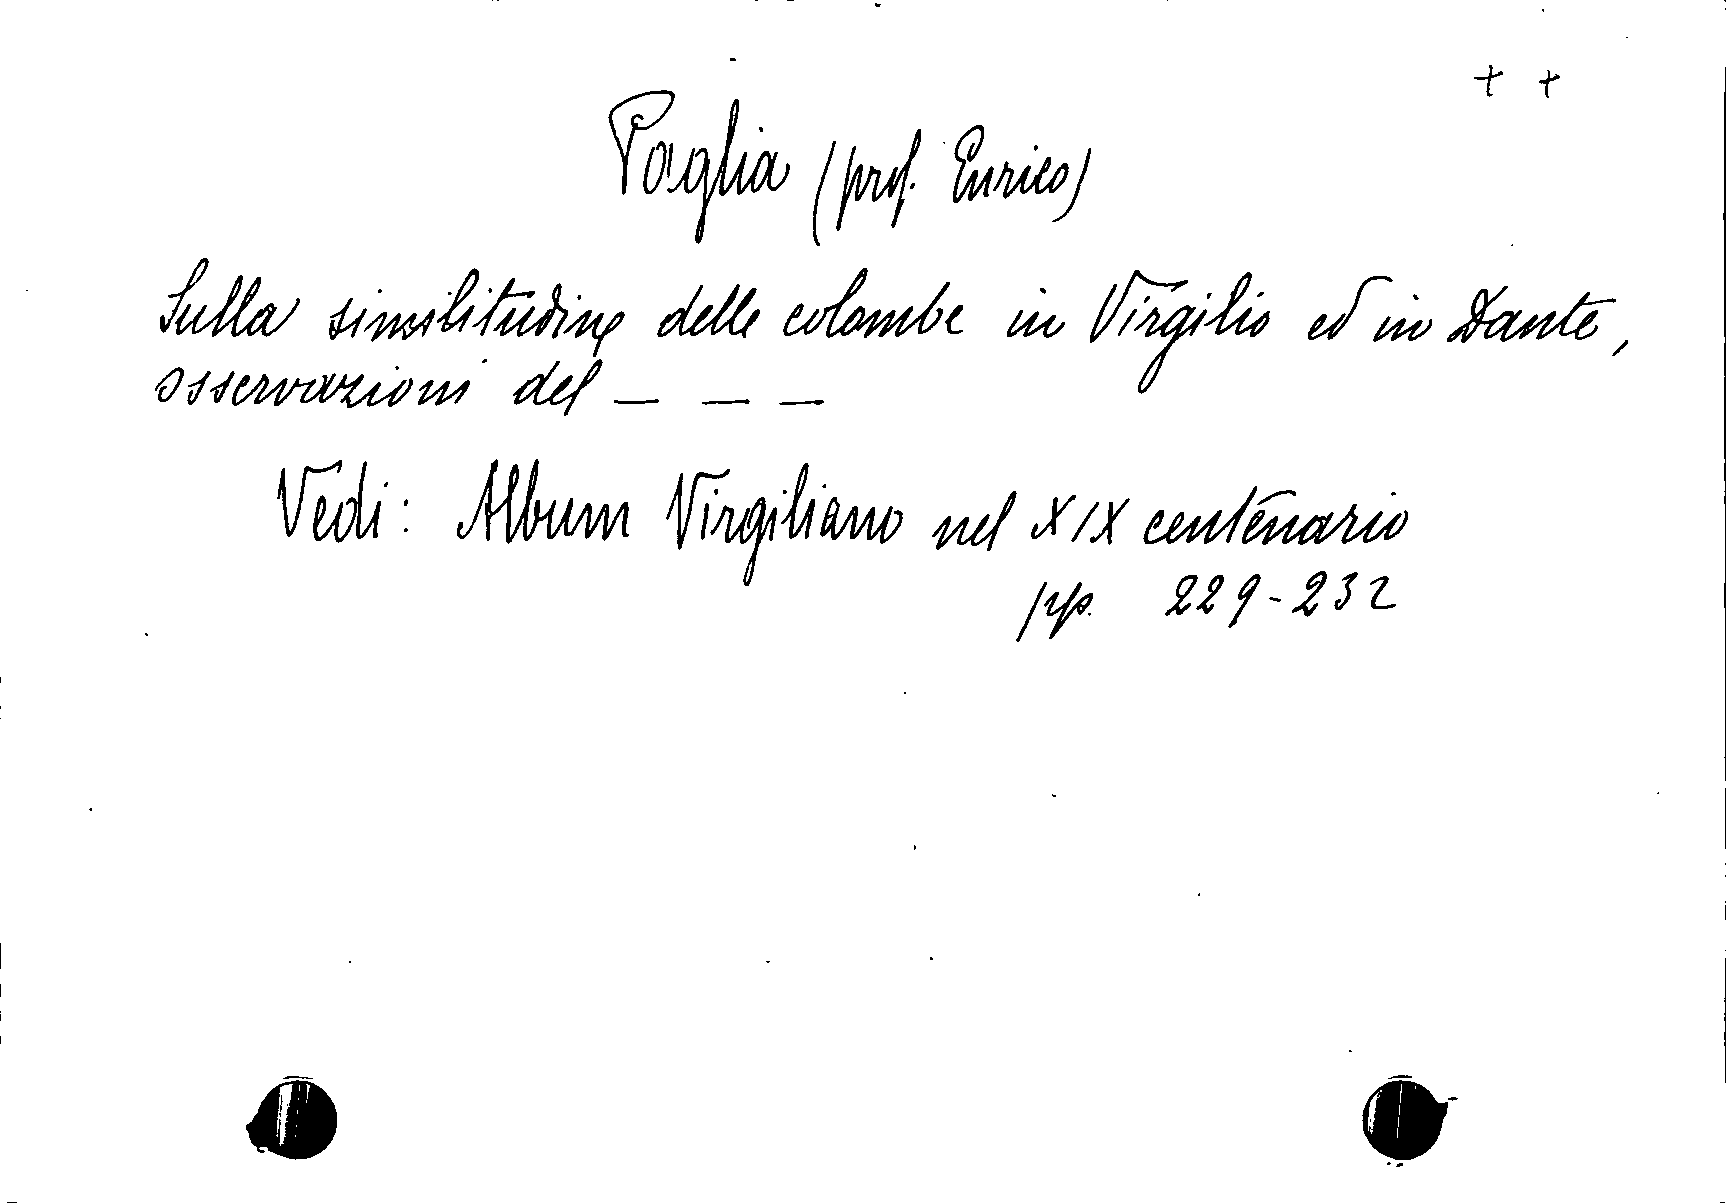 + +
Paglia (prof. Enrico)
Sulla similitudine delle colombe in Virgilio ed in Dante,
osservazioni del _ _ _
Vedi: Album Virgiliano nel XIX centenario
pp. 229-232